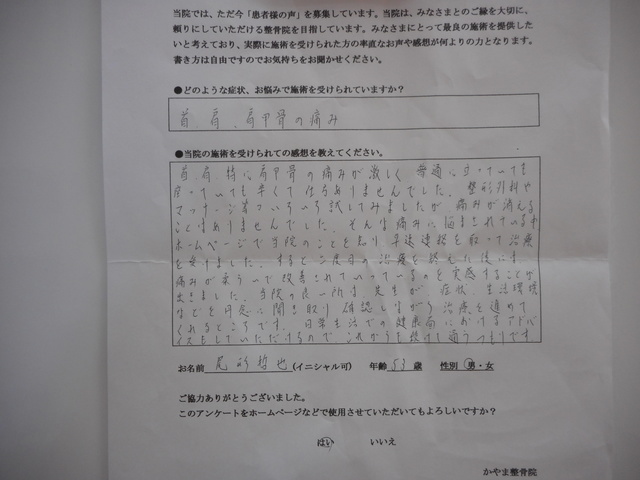 当院では、ただ今「患者様の声」を募集しています。当院は、みなさまとのご縁を大切に、
頼りにしていただける整骨院を目指しています。みなさまにとって最良の施術を提供した
いと考えており、実際に施術を受けられた方の率直なお声や感想が何よりの力となります。
書き方は自由ですのでお気持ちをお聞かせください。
●どのような症状、お悩みで施術を受けられていますか？
首、肩、肩甲骨の痛み
●当院の施術を受けられての感想を教えてください。
首、肩、特に肩甲骨の痛みが激しく 普通に立っていても
座っていても辛くて仕方ありませんでした。整形外科や
マッサージ等でいろいろ試してみましたが 痛みが消える
ことはありませんでした。そんな痛みに悩まされている中
ホームページで当院のことを知り 早速連絡を取って治療
を受けました。すると二度目の治療を終えた後にす
痛みが 改善されていっているのを実感することが
出きました。当院の良い所は、先生が 症状、生活環境
などを丹念に聞き取り 確認しながら 治療を進めて
くれるところです。日常生活での健康面におけるアドバ
イスもしていただけるので これからも続けて通うつもりです
お名前 尾 哲也 (イニシャル可) 年齢 53 歳 性別 男・女
ご協力ありがとうございました。
このアンケートをホームページなどで使用させていただいてもよろしいですか？
はい いいえ
かやま整骨院